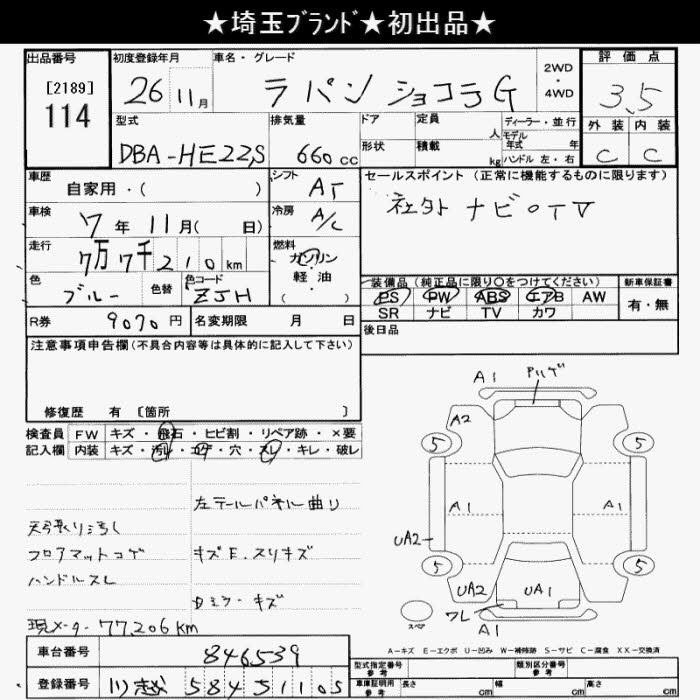 ★埼玉ﾌﾞﾗﾝﾄﾞ★初出品★
出品番号 初度登録年月 車名・グレード 2WD・4WD 評価点
[2189] 114 26年 11月 ラパン ショコラG 3.5
外装 内装
C C
型式 排気量 ドア 定員 人 ディーラー・並行
DBA-HE22S 660cc 形状 積載 kg モデル年式 年 ハンドル 左・右
車歴 自家用・( ) シフト AT セールスポイント (正常に機能するものに限ります)
社外 ナビ○TV
車検 7年 11月( 日) 冷房 A/C
走行 7万7千210km 燃料 ガソリン・軽油・( )
色 ブルー 色替 色コード ZJH
装備品 (純正品に限り○をつけてください) 新車保証書
PS PW ABS エアB AW 有・無
SR ナビ TV カワ
R券 9070円 名変期限 月 日 後日品
注意事項申告欄(不具合内容等は具体的に記入して下さい)
修復歴 有 [箇所 ]
検査員 FW キズ・飛石・ヒビ割・リペア跡・×要
記入欄 内装 キズ・汚れ・コゲ・穴・スレ・キレ・破レ
左テールパネル曲り
天張り汚し
フロアマットコゲ キズE.スリキズ
ハンドルスレ
Dミラーキズ
現メーター77,206km
A1 アリゲ
A2
5 5
A1 A1
UA2
5 5
UA2 UA1
ワレ
スペア A1
A-キズ E-エクボ U-凹み W-補修跡 S-サビ C-腐食 XX-交換済
車台番号 846539
登録番号 川越 584 う 1105
型式指定番号 参考 類別区分番号 参考
車庫証明用 参考 長さ cm 幅 cm 高さ cm